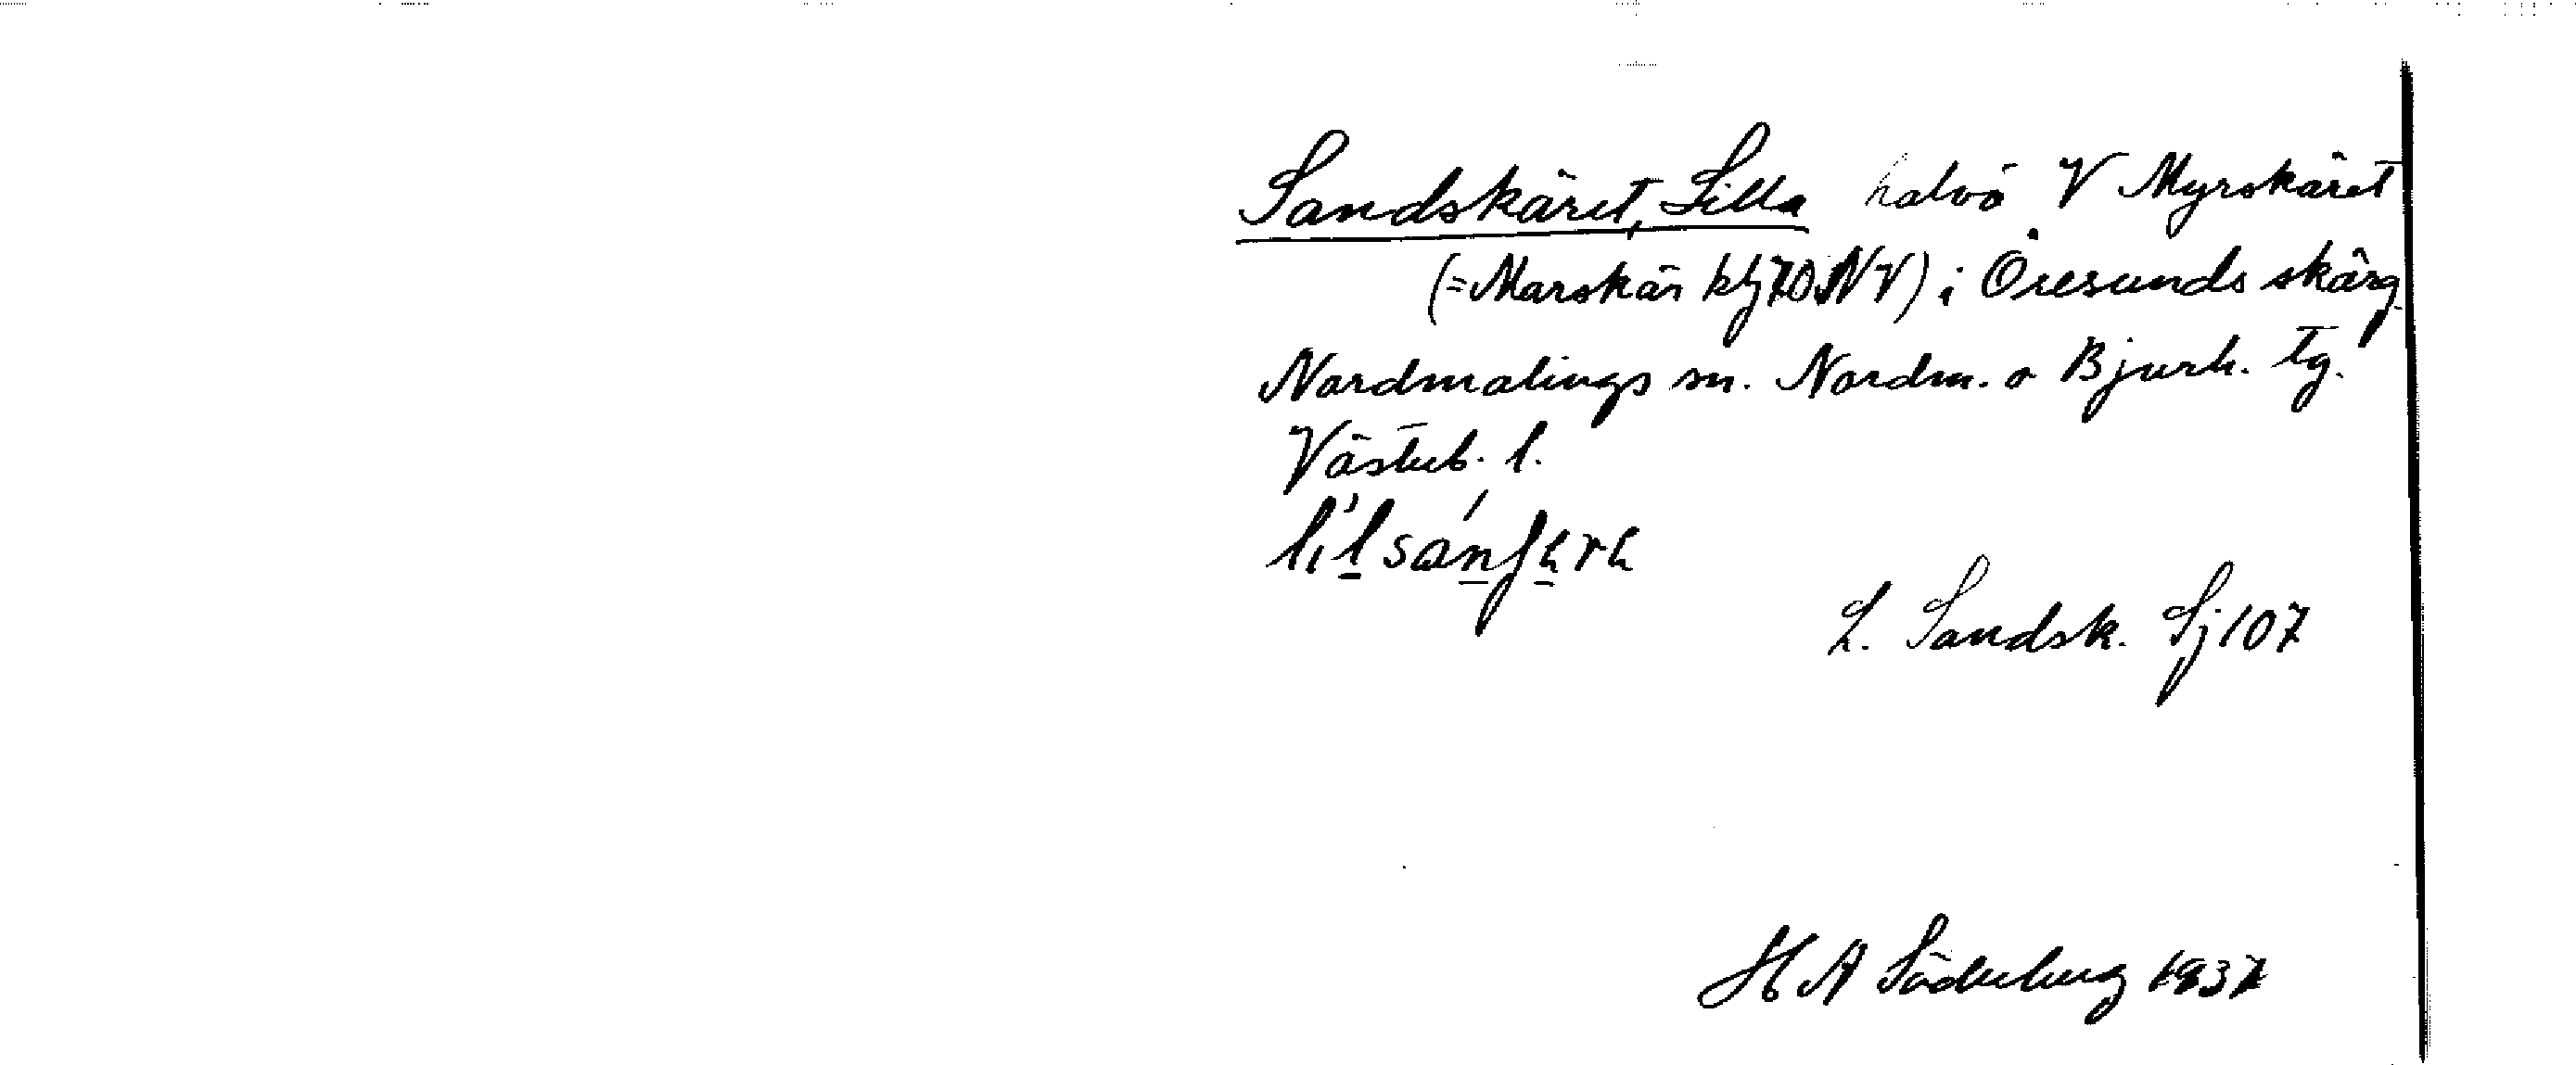 Sandskäret, Lilla halvö V Myrskäret
(=Marskär kbj 70 NV) i Öresunds skärg.
Nordmalings sn. Nordm. o Bjurh. tg.
Västerb. l.
L. Sandsk. Sj 107
H A Söderberg 1937